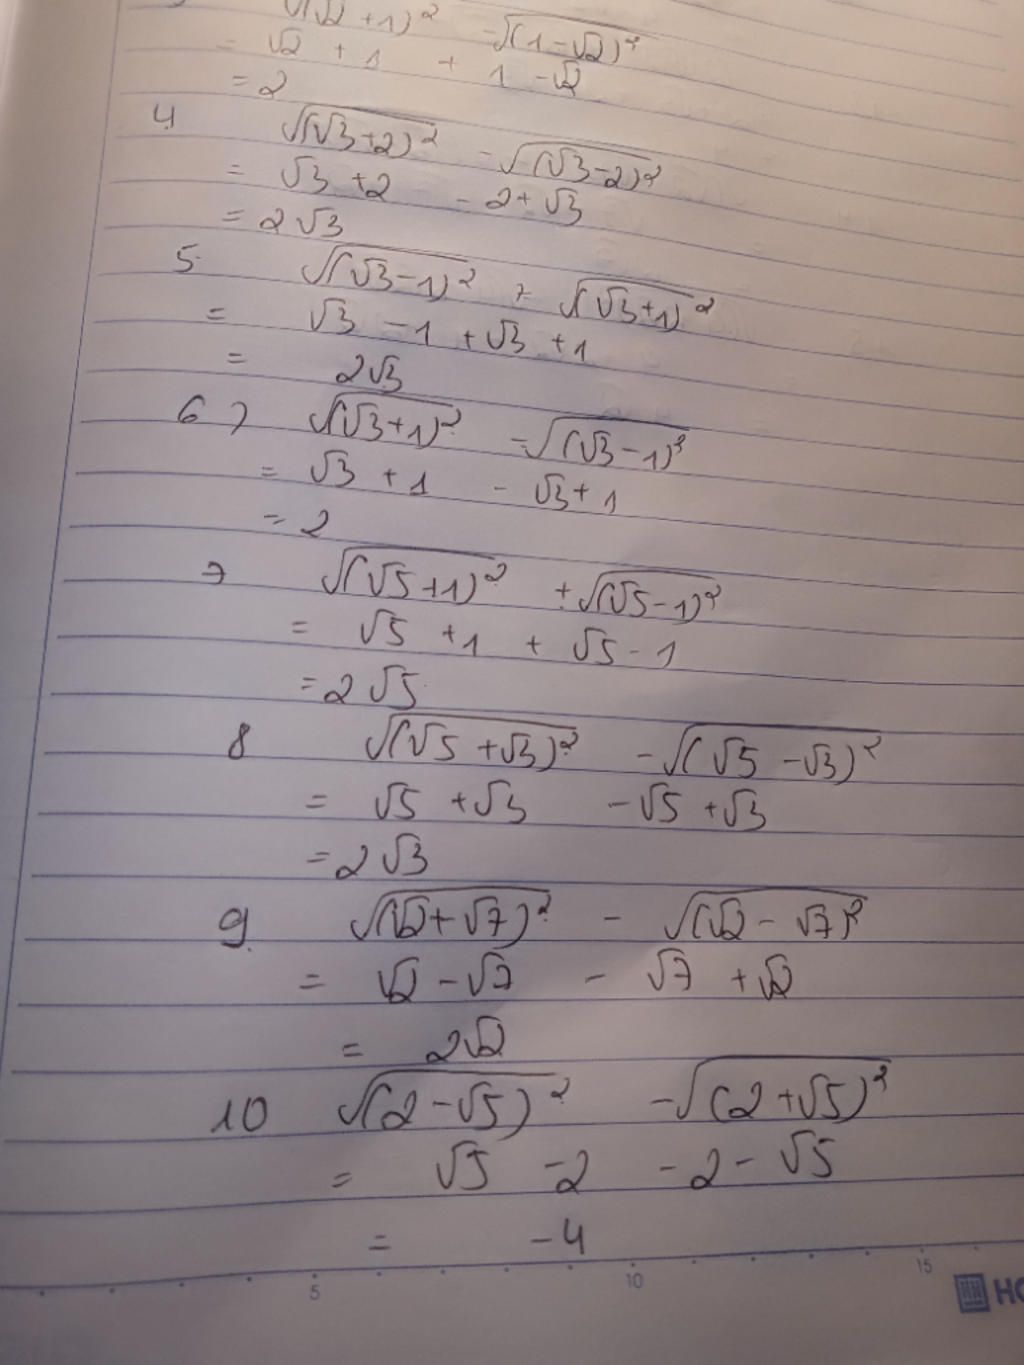 √(√2 + 1)² - √(1 - √2)²
= √2 + 1 + 1 - √2
= 2
4 √(√3 + 2)² - √(√3 - 2)²
= √3 + 2 - 2 + √3
= 2√3
5. √(√3 - 1)² + √(√3 + 1)²
= √3 - 1 + √3 + 1
= 2√3
6) √(√3 + 1)² - √(√3 - 1)²
= √3 + 1 - √3 + 1
= 2
7 √(√5 + 1)² + √(√5 - 1)²
= √5 + 1 + √5 - 1
= 2√5
8 √(√5 + √3)² - √(√5 - √3)²
= √5 + √3 - √5 + √3
= 2√3
9. √(√2 + √7)² - √(√2 - √7)²
= √2 - √7 - √7 + √2
= 2√2
10 √(2 - √5)² - √(2 + √5)²
= √5 - 2 - 2 - √5
= -4
5 10 15